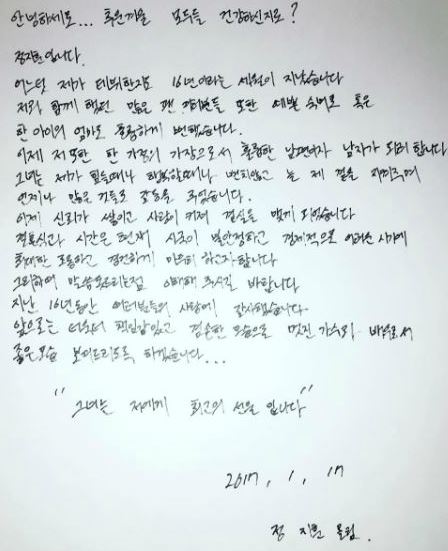 안녕하세요... 혹은 끼울 모두들 건강하신지요?
정지훈입니다.
어느덧 제가 데뷔한지 16년이라는 세월이 지났습니다
저와 함께 했던 많은 팬 여러분들 또한 예쁜 숙녀로 혹은
한 아이의 엄마로 훌륭하게 변했습니다.
이제 저 또한 한 가정의 가장으로서 훌륭한 남편이자 남자가 되려 합니다
그녀는 제가 힘들때나 행복할때나 변치않고 늘 제 곁을 지켜주며
언제나 많은 것들로 감동을 주었습니다.
이제 신뢰가 쌓이고 사랑이 커져 결실을 맺게 되었습니다
결혼식과 시간은 현재 시국이 불안정하고 경제적으로 어려운 시기에
최대한 조용하고 경건하게 만드려 하고자 합니다
그리하여 말씀 못드리는점 이해해 주시길 바랍니다
지난 16년동안 여러분들의 사랑에 감사했습니다
앞으로는 더더더 책임감있고 겸손한 모습으로 멋진 가수와 배우로서
좋은모습 보여드리도록 하겠습니다...
" 그녀는 저에게 최고의 선물 입니다 "
2017. 1. 17
정 지훈 올림.